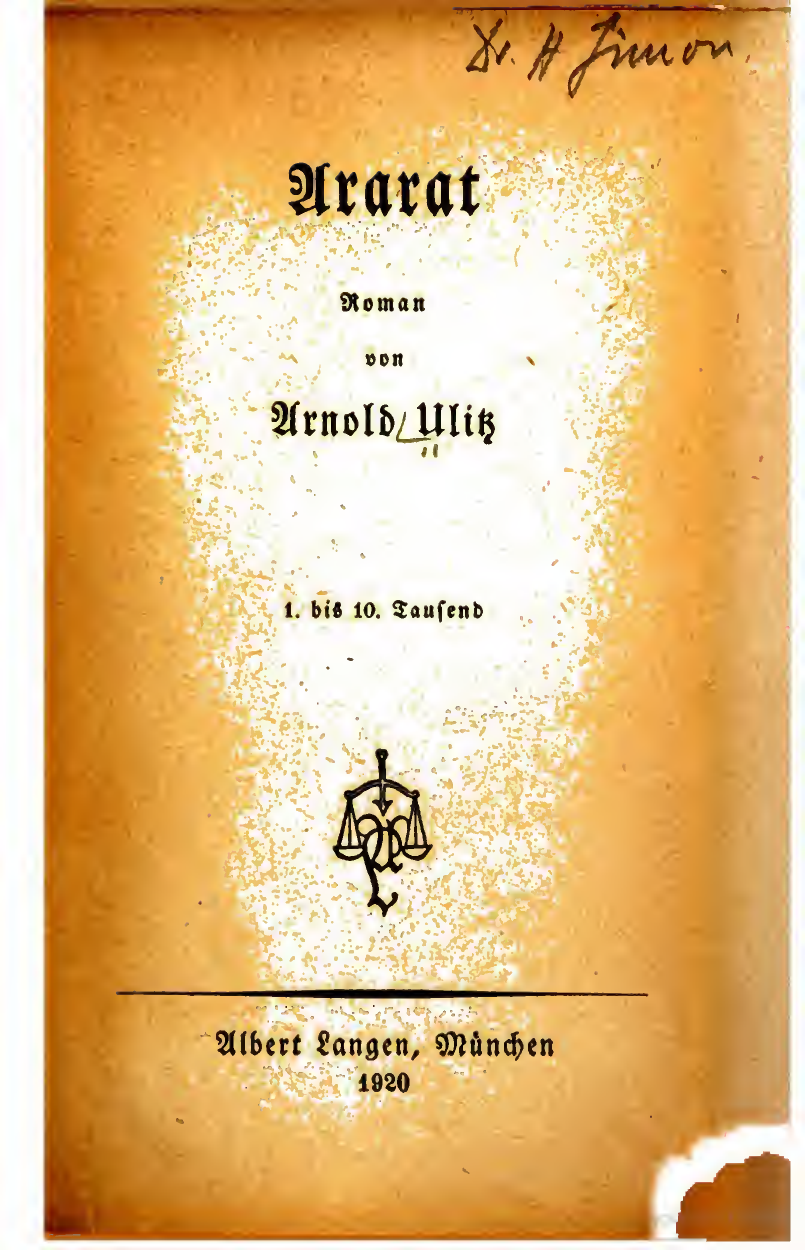 Dr. H Simon.
Ararat
Roman
von
Arnold Ulitz
1. bis 10. Tausend
AL
Albert Langen, München
1920